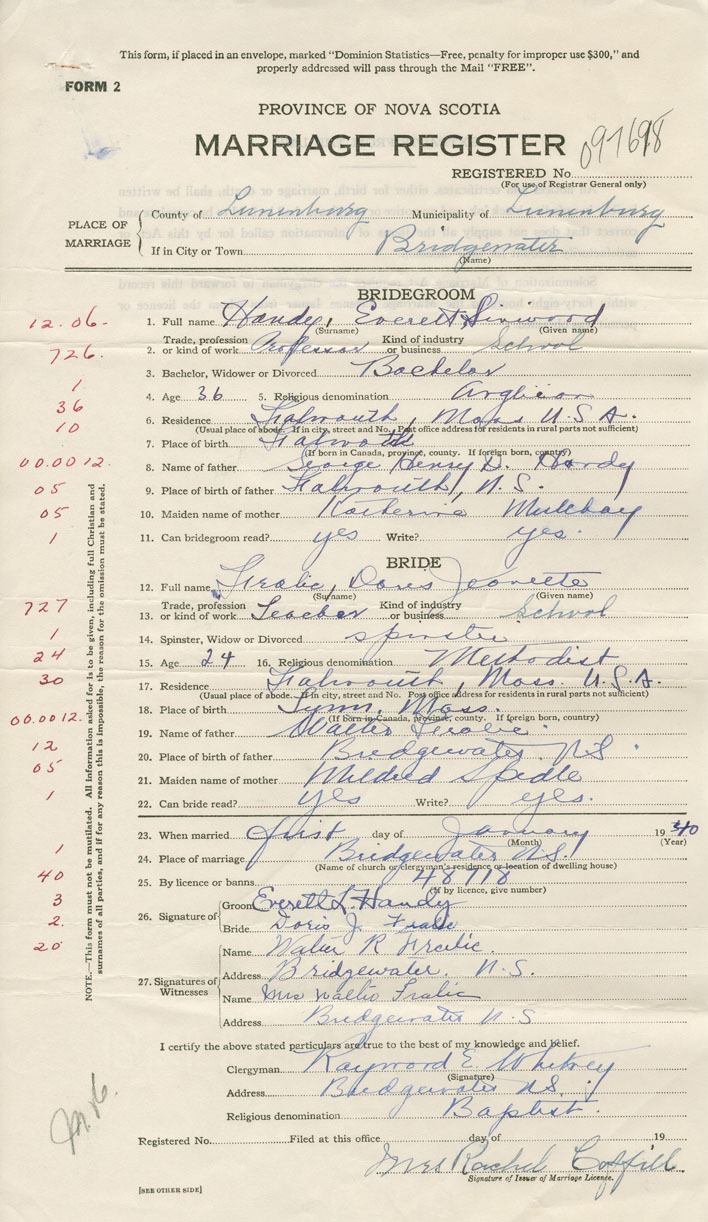 This form, if placed in an envelope, marked "Dominion Statistics—Free, penalty for improper use $300," and
properly addressed will pass through the Mail "FREE".
FORM 2
PROVINCE OF NOVA SCOTIA
MARRIAGE REGISTER
097698
REGISTERED No.
(For use of Registrar General only)
PLACE OF MARRIAGE
County of Lunenburg Municipality of Lunenburg
If in City or Town Bridgewater
(Name)
BRIDEGROOM
12.06. 1. Full name Handy, Everett Linwood
(Surname) (Given name)
726. 2. Trade, profession or kind of work Professor Kind of industry or business School
3. Bachelor, Widower or Divorced Bachelor
1
36 4. Age 36 5. Religious denomination Anglican
10 6. Residence Falmouth, Mass U.S.A.
(Usual place of abode. If in city, street and No. Post office address for residents in rural parts not sufficient)
7. Place of birth Falmouth
(If born in Canada, province, county. If foreign born, country)
00.00 12. 8. Name of father George Henry D. Handy
05 9. Place of birth of father Falmouth, N.S.
05 10. Maiden name of mother Katherine
1 11. Can bridegroom read? yes Write? yes.
BRIDE
12. Full name Fralic, Doris Jeanette
(Surname) (Given name)
727 13. Trade, profession or kind of work Teacher Kind of industry or business School
1 14. Spinster, Widow or Divorced spinster
24 15. Age 24 16. Religious denomination Methodist
30 17. Residence Falmouth, Mass. U.S.A.
(Usual place of abode. If in city, street and No. Post office address for residents in rural parts not sufficient)
18. Place of birth Lynn, Mass.
(If born in Canada, province, county. If foreign born, country)
00.00 12. 19. Name of father Walter Fralic.
12 20. Place of birth of father Bridgewater N.S.
05 21. Maiden name of mother Mildred Spidle
1 22. Can bride read? yes Write? yes.
23. When married first day of January 19 40
(Month) (Year)
1 24. Place of marriage Bridgewater N.S.
(Name of church or clergyman's residence or location of dwelling house)
40 25. By licence or banns 48778
(If by licence, give number)
3 26. Signature of Groom Everett L. Handy
2. Bride Doris J. Fralic
20 27. Signatures of Witnesses
Name Walter R Fralic.
Address Bridgewater. N.S.
Name Mrs Walter Fralic
Address Bridgewater N.S
I certify the above stated particulars are true to the best of my knowledge and belief.
Clergyman Raymond E. Whitney
(Signature)
Address Bridgewater N.S.
Religious denomination Baptist.
Registered No. Filed at this office day of 19
Mrs Rachel
Signature of Issuer of Marriage Licence.
[SEE OTHER SIDE]
NOTE.—This form must not be mutilated. All information asked for is to be given, including full Christian and
surnames of all parties, and if for any reason this is impossible, the reason for the omission must be stated.